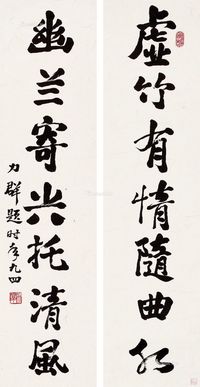 虚竹有情隨曲水
幽兰寄兴托清風
力群题时年九四